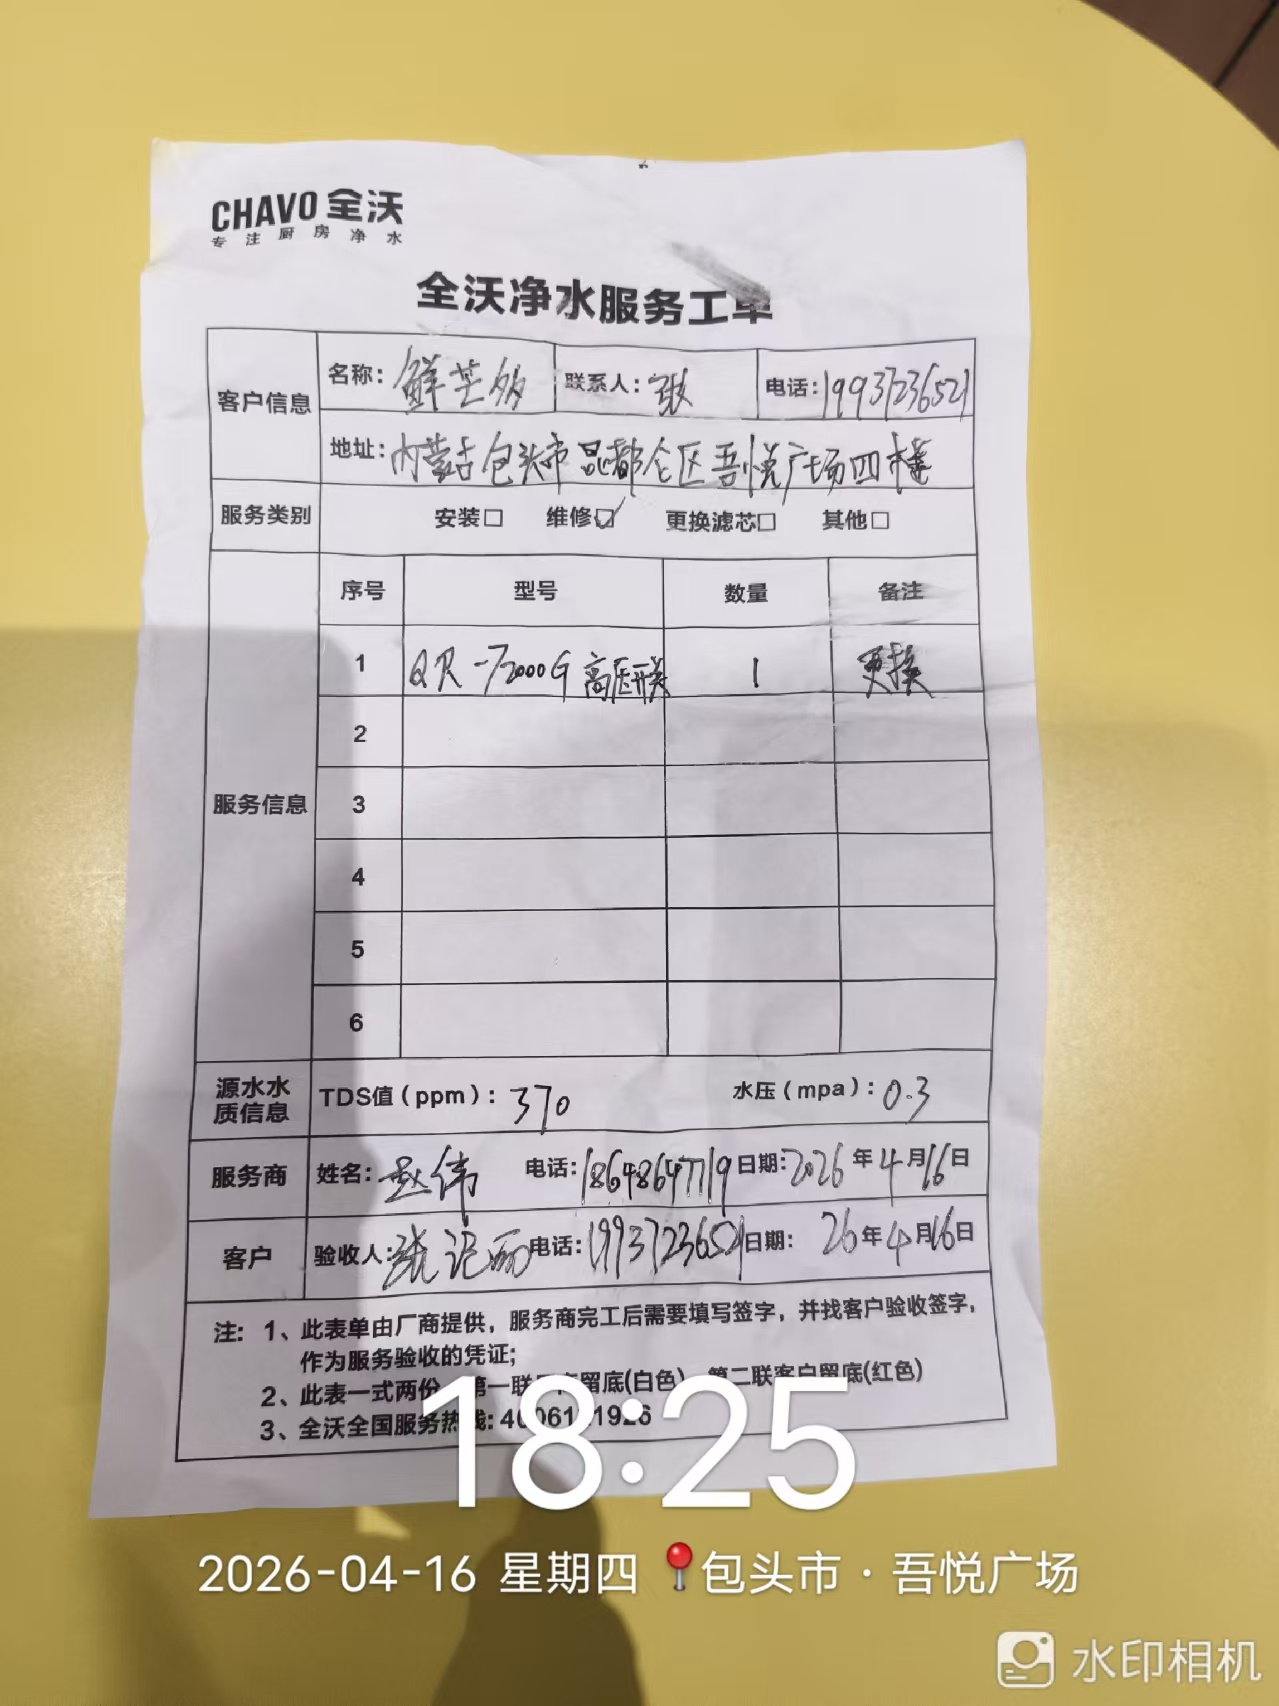 CHAVO 全沃
专注厨房净水
全沃净水服务工单
客户信息 名称: 鲜芒多 联系人: 张 电话: 19937236521
地址: 内蒙古包头市昆都仑区吾悦广场四楼
服务类别 安装□ 维修☑ 更换滤芯□ 其他□
服务信息 序号 型号 数量 备注
1 QR-72000G 高压开关 1 更换
2
3
4
5
6
源水水质信息 TDS值(ppm): 370 水压(mpa): 0.3
服务商 姓名: 赵伟 电话: 18648647719 日期: 2026年4月16日
客户 验收人: 张 电话: 19937236521 日期: 26年4月16日
注: 1、此表单由厂商提供，服务商完工后需要填写签字，并找客户验收签字，
作为服务验收的凭证;
2、此表一式两份 第一联 留底(白色) 第二联客户留底(红色)
3、全沃全国服务热线:
18:25
2026-04-16 星期四 📍包头市·吾悦广场
水印相机